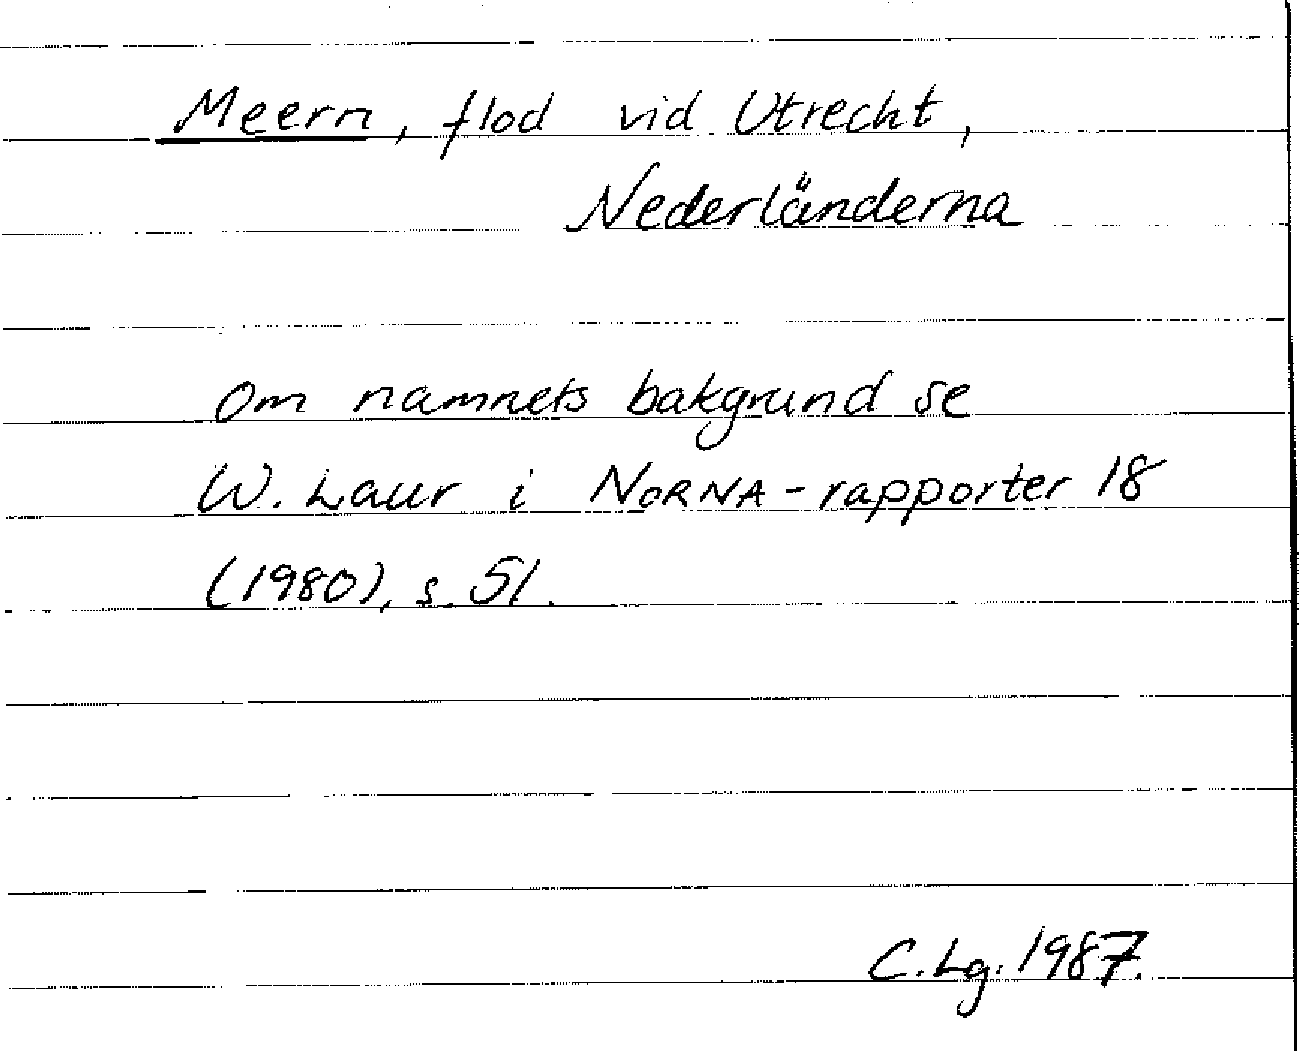 Meern, flod vid Utrecht,
Nederländerna
Om namnets bakgrund se
W. Laur i NORNA-rapporter 18
(1980), s. 51.
C. Lg. 1987.